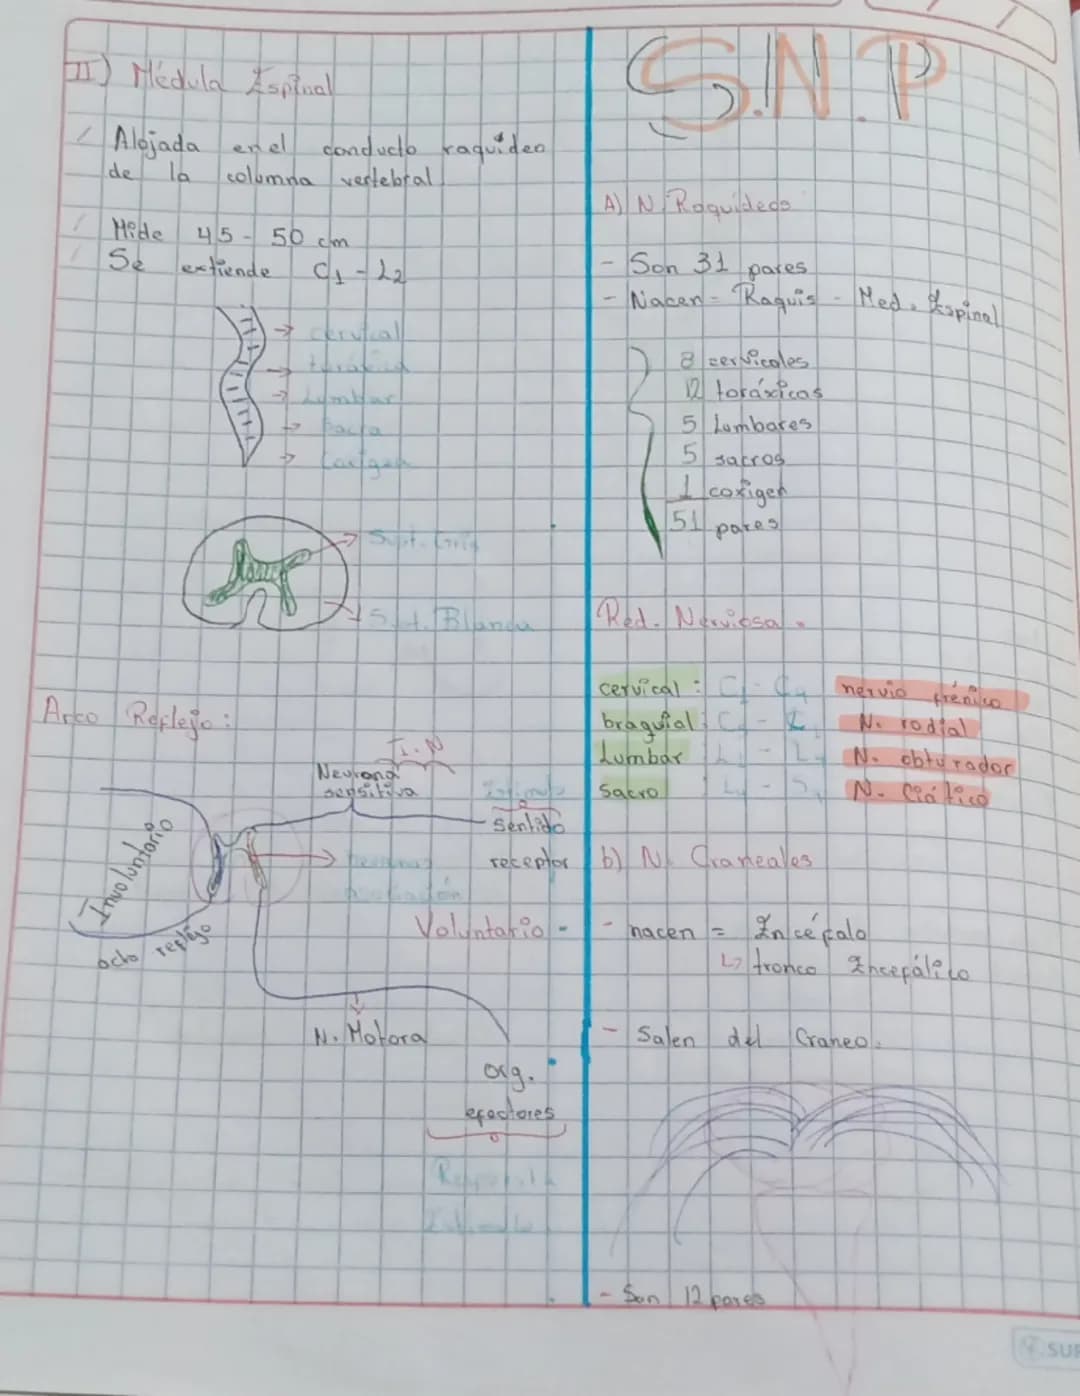 II) Médula Espinal
Alojada en el conducto raquídeo
de la columna vertebral
Mide 45 - 50 cm
Se extiende C1 - L2
cervical
torácica
Lumbar
Sacra
Sust. Gris
Sust. Blanca
Arco Reflejo:
I. N
Neurona
sensitiva
Estimulo
sentido
receptor
Involuntario
acto reflejo
Voluntario -
N. Motora
org.
efectores
Respuesta
S.N.P
A) N. Raquídeos
- Son 31 pares
- Nacen = Raquis - Med. Espinal
8 cervicales
12 toráxicas
5 Lumbares
5 sacros
1 coxigen
51 pares
Red. Nerviosa.
cervical: C1 - C4 nervio frénico
braquial: N. radial
Lumbar N. obturador
Sacro N. Ciático
b) N. Craneales
- nacen = Encéfalo
↳ tronco Encefálico
- Salen del Craneo.
- Son 12 pares
SUR